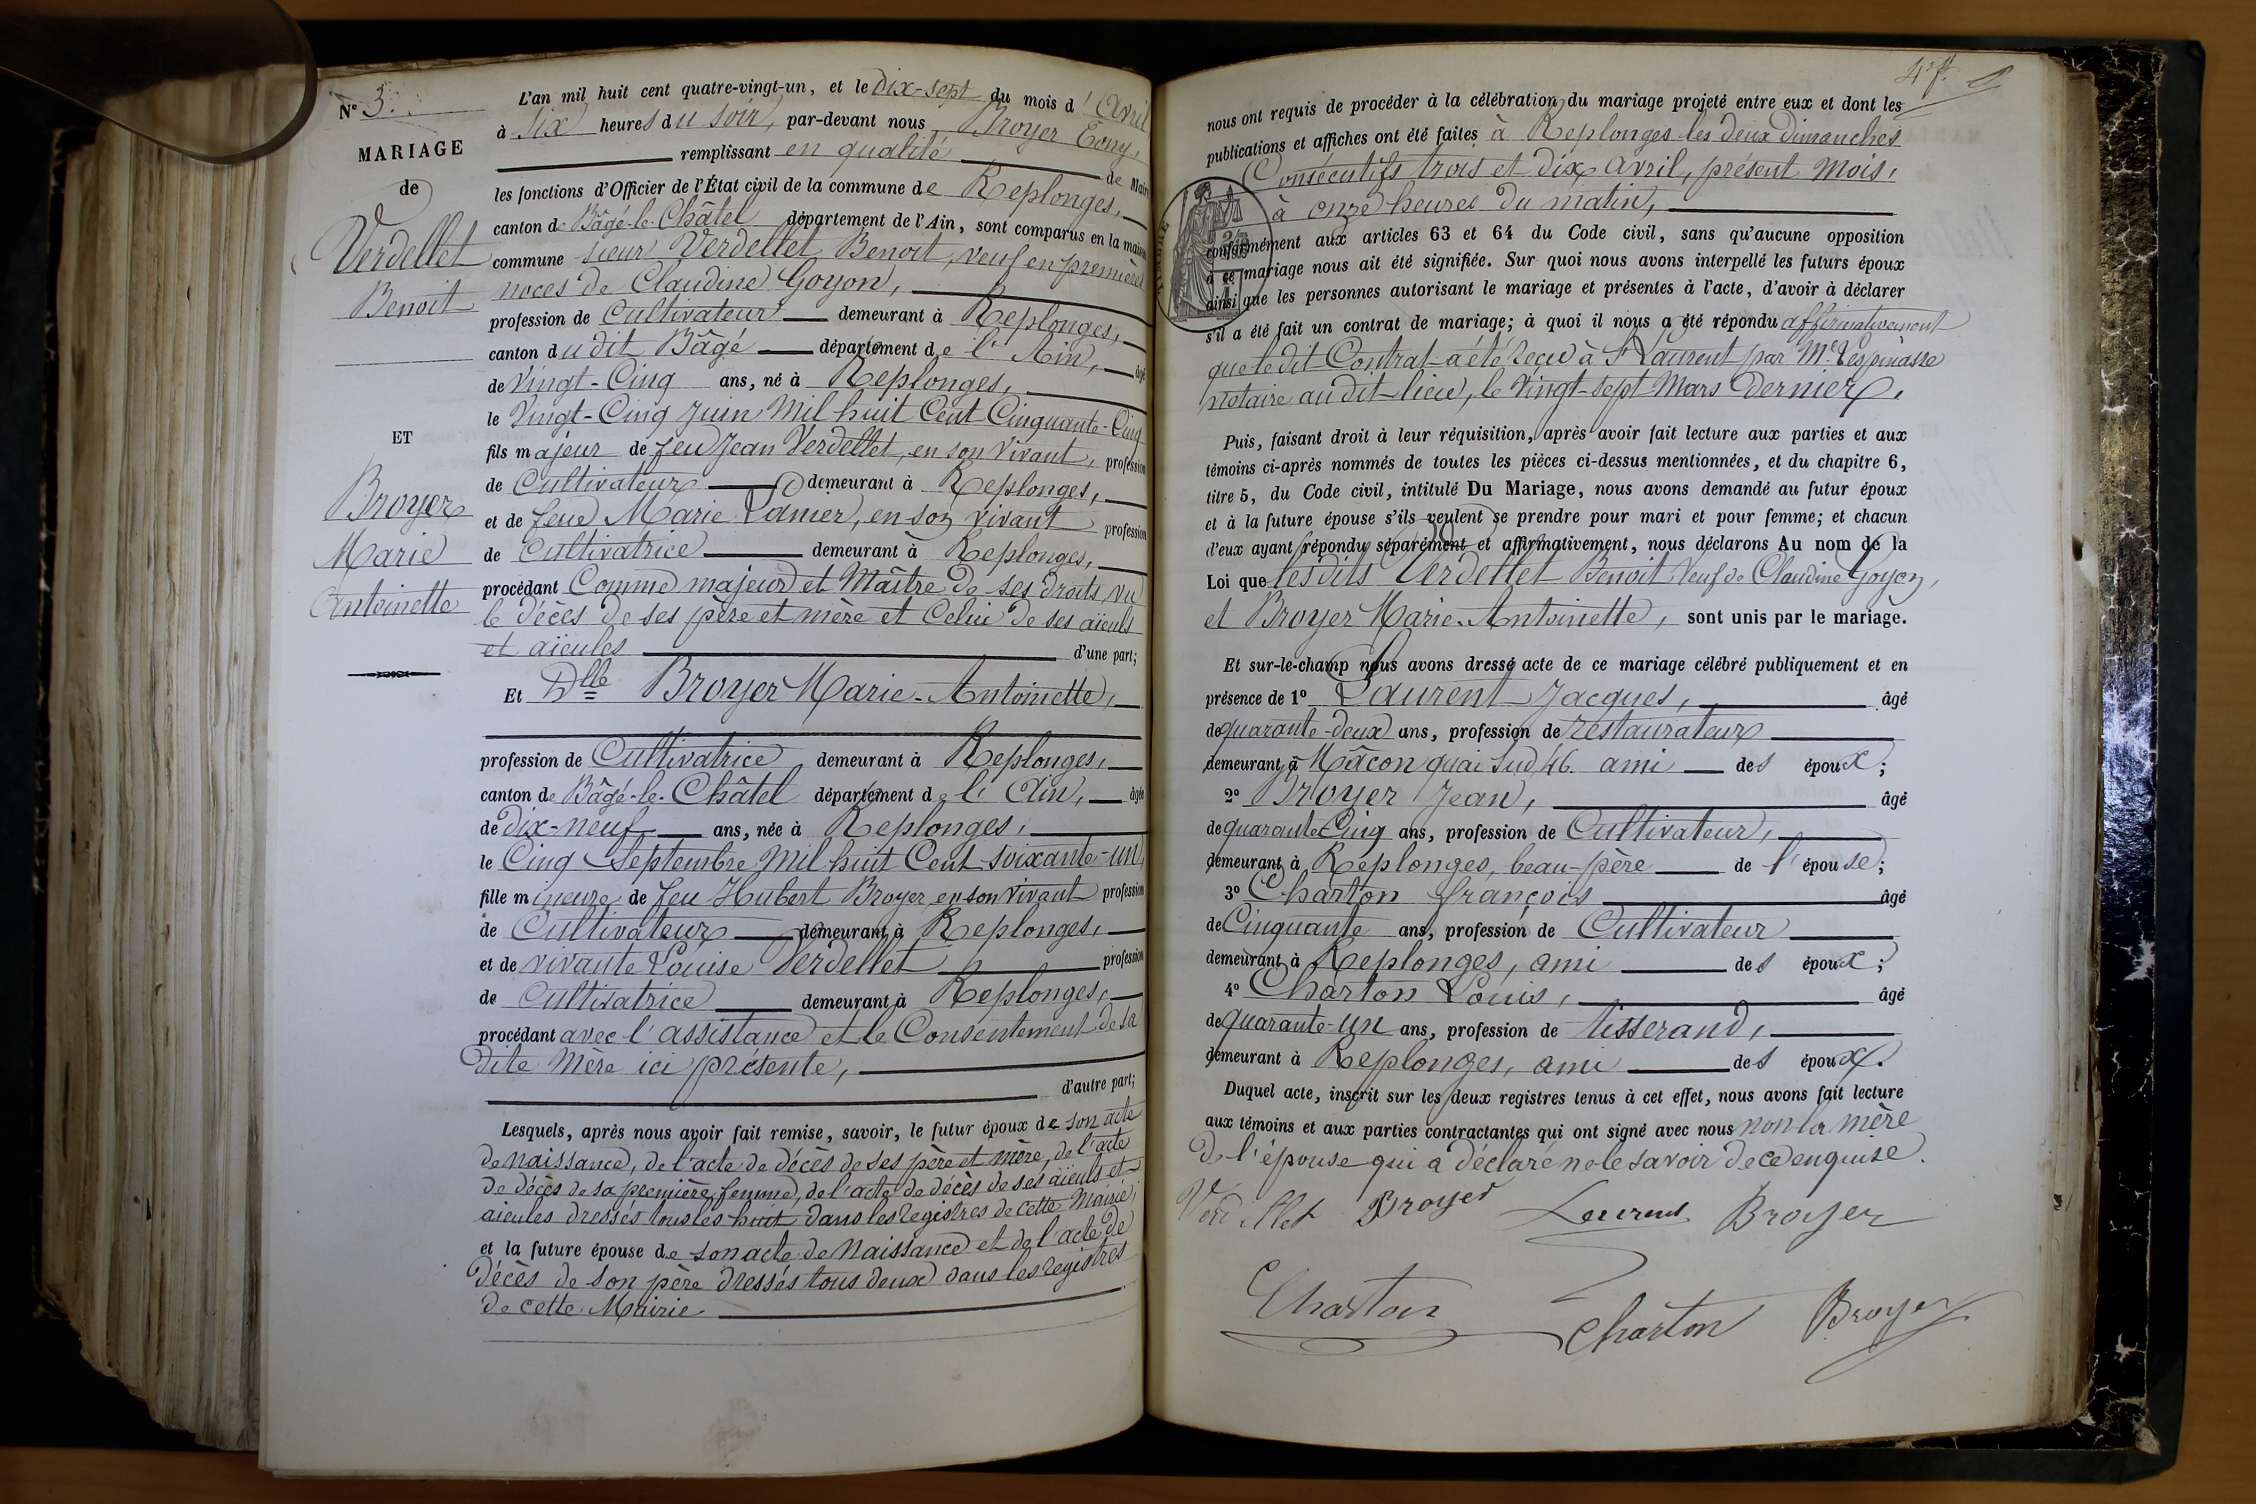 N° 3.
MARIAGE
de
Verdellet
Benoit
ET
Broyer
Marie
Antoinette
L'an mil huit cent quatre-vingt-un, et le Dix-sept du mois d'Avril
à Six heures du soir, par-devant nous Broyer
remplissant en qualité de Maire
les fonctions d'Officier de l'État civil de la commune de Replonges,
canton de Bâgé-le-Châtel département de l'Ain, sont comparus en la maison
commune sieur Verdellet Benoit, veuf en premières
noces de Claudine Goyon,
profession de Cultivateur demeurant à Replonges,
canton du dit Bâgé département de l'Ain, âgé
de Vingt-Cinq ans, né à Replonges,
le Vingt-Cinq Juin Mil huit Cent Cinquante-Cinq
fils majeur de feu Jean Verdellet, en son vivant, profession
de Cultivateur demeurant à Replonges,
et de feue Marie Panier, en son vivant profession
de Cultivatrice demeurant à Replonges,
procédant Comme majeur et Maître de ses droits, vu
le décès de ses père et mère et Celui de ses aïeuls
et aïeules d'une part;
Et Dlle Broyer Marie-Antoinette,
profession de Cultivatrice demeurant à Replonges,
canton de Bâgé-le-Châtel département de l'Ain, âgée
de Dix-neuf ans, née à Replonges,
le Cinq Septembre Mil huit Cent soixante-un,
fille mineure de feu Hubert Broyer en son vivant profession
de Cultivateur demeurant à Replonges,
et de vivante Louise Verdellet profession
de Cultivatrice demeurant à Replonges,
procédant avec l'assistance et le Consentement de sa
dite Mère ici présente,
d'autre part;
Lesquels, après nous avoir fait remise, savoir, le futur époux de son acte
de Naissance, de l'acte de décès de ses père et mère, de l'acte
de décès de sa première femme, de l'acte de décès de ses aïeuls et
aïeules dressés tous les huit dans les registres de cette Mairie,
et la future épouse de son acte de Naissance et de l'acte de
décès de son père dressés tous deux dans les registres
de cette Mairie
nous ont requis de procéder à la célébration du mariage projeté entre eux et dont les
publications et affiches ont été faites à Replonges les deux dimanches
Consécutifs trois et dix Avril, présent Mois,
à onze heures du matin,
conformément aux articles 63 et 64 du Code civil, sans qu'aucune opposition
à ce mariage nous ait été signifiée. Sur quoi nous avons interpellé les futurs époux
ainsi que les personnes autorisant le mariage et présentes à l'acte, d'avoir à déclarer
s'il a été fait un contrat de mariage; à quoi il nous a été répondu affirmativement
que le dit Contrat a été reçu à St Laurent par Me Lespinasse
notaire au dit lieu, le Vingt-sept Mars Dernier.
Puis, faisant droit à leur réquisition, après avoir fait lecture aux parties et aux
témoins ci-après nommés de toutes les pièces ci-dessus mentionnées, et du chapitre 6,
titre 5, du Code civil, intitulé Du Mariage, nous avons demandé au futur époux
et à la future épouse s'ils veulent se prendre pour mari et pour femme; et chacun
d'eux ayant répondu séparément et affirmativement, nous déclarons Au nom de la
Loi que lesdits Verdellet Benoit Veuf de Claudine Goyon,
et Broyer Marie-Antoinette, sont unis par le mariage.
Et sur-le-champ nous avons dressé acte de ce mariage célébré publiquement et en
présence de 1° Laurent Jacques, âgé
de quarante-deux ans, profession de restaurateur
demeurant à Mâcon quai Sud, 46. ami des époux;
2° Broyer Jean, âgé
de quarante Cinq ans, profession de Cultivateur,
demeurant à Replonges, beau-père de l'épouse;
3° Charton françois âgé
de Cinquante ans, profession de Cultivateur
demeurant à Replonges, ami des époux;
4° Charton Louis, âgé
de quarante-un ans, profession de tisserand,
demeurant à Replonges, ami des époux.
Duquel acte, inscrit sur les deux registres tenus à cet effet, nous avons fait lecture
aux témoins et aux parties contractantes qui ont signé avec nous non la mère
de l'épouse qui a déclaré ne le savoir de ce enquise.
Verdellet Broyer Laurent Broyer
Charton Charton Broyer